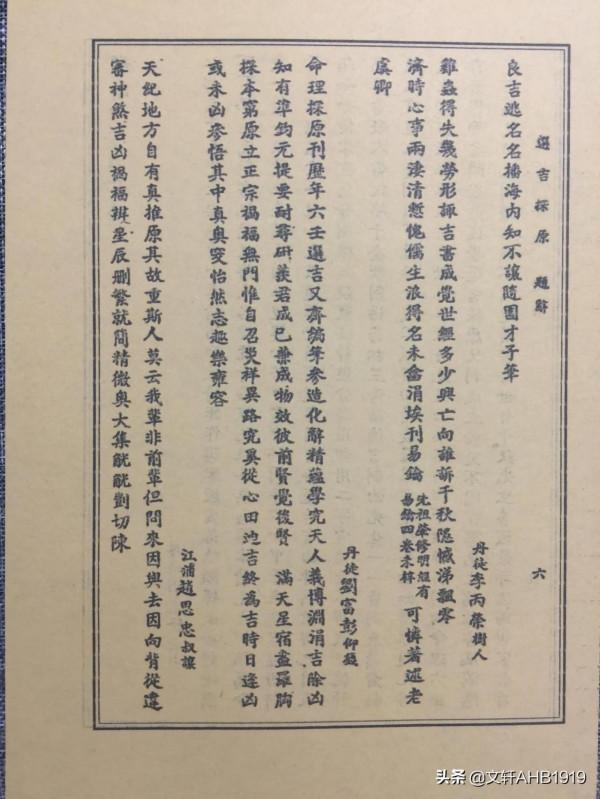 選吉探原　題辭　六
良吉逃名名播海內知不讓隨園才子筆
丹徒李丙榮樹人
雞蟲得失幾勞形諏吉書成覺世經多少興亡向誰訴千秋隱憾涕飄零
濟時心事兩淒清慙愧儒生浪得名未侖涓埃刊易鑰先祖榮修明經有易鑰四卷未梓可憐著述老
虞卿
丹徒劉富彭仰發
命理探原刊歷年六壬選吉又齊編筆參造化辭精蘊學究天人義博淵涓吉除凶
知有準鉤元提要耐尋研羨君成已兼成物效彼前賢覺後賢　滿天星宿盡羅胸
探本窮原立正宗禍福無門惟自召災祥異路究奚從心田池吉終為吉時日逢凶
或未凶參悟其中真奧窔怡然志趣樂雍容
江浦趙思忠叔讓
天紀地方自有真推原其故重斯人莫云我輩非前輩但問來因與去因向背從違
審神煞吉凶禍福辨星辰刪繁就簡精微奧大集觥觥剴切陳
头条 @文轩AHB1919